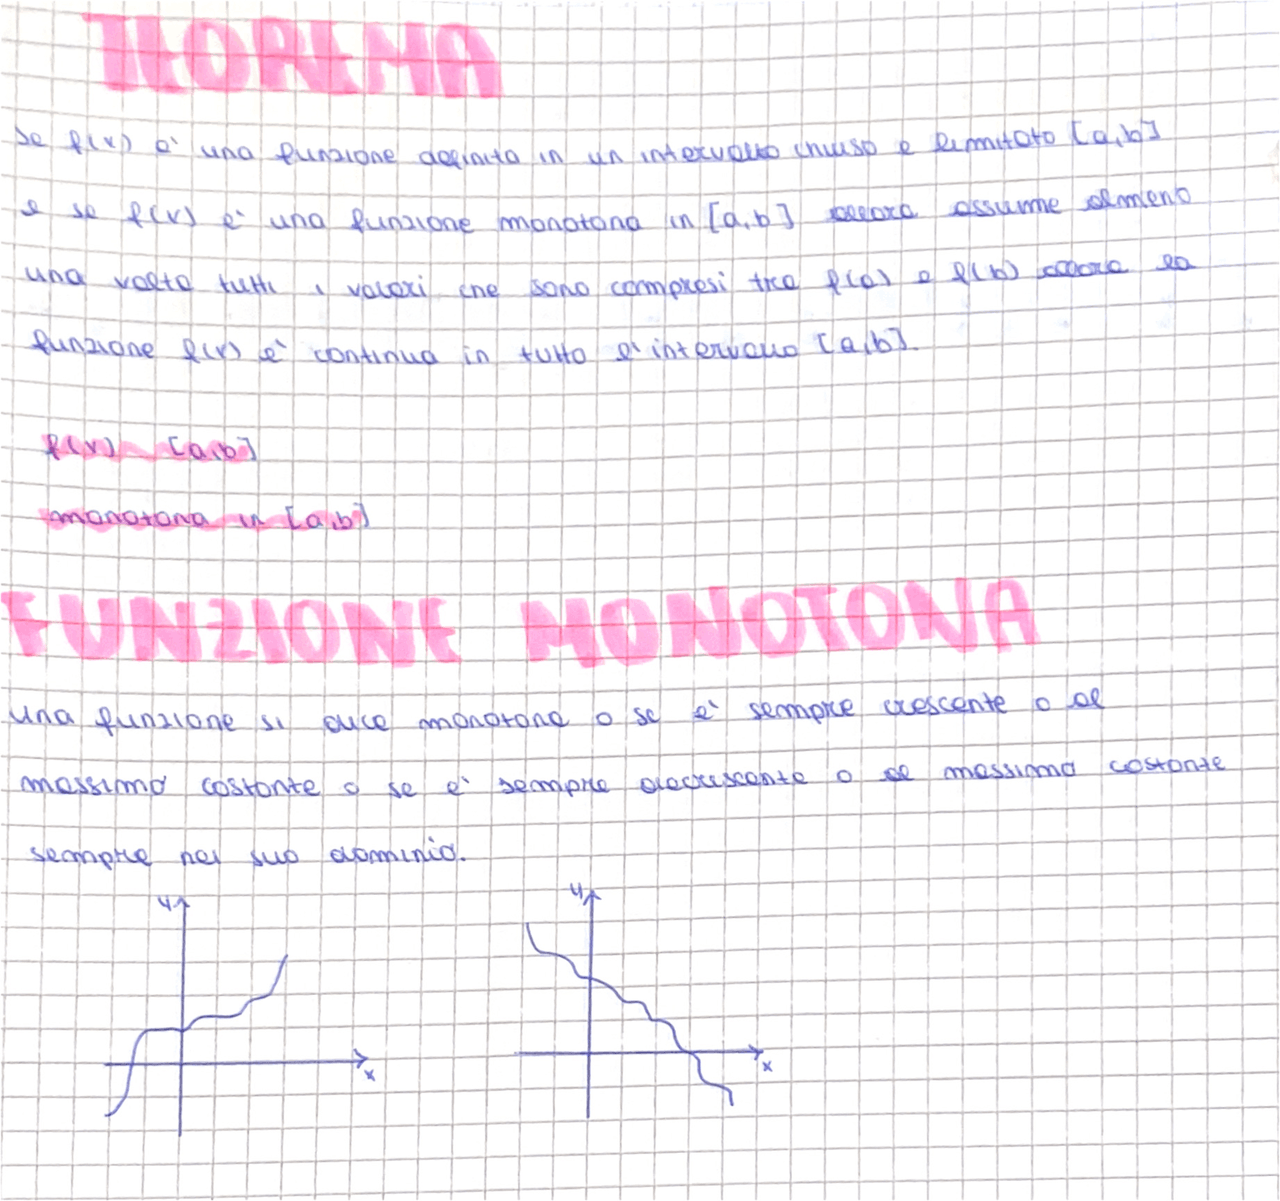 TEOREMA
se f(x) è una funzione definita in un intervallo chiuso e limitato [a,b]
e se f(x) è una funzione monotona in [a,b] allora assume almeno
una volta tutti i valori che sono compresi tra f(a) e f(b) allora la
funzione f(x) è continua in tutto l'intervallo [a,b].
f(x) [a,b]
monotona in [a,b]
FUNZIONE MONOTONA
una funzione si dice monotona o se è sempre crescente o al
massimo costante o se è sempre decrescente o al massimo costante
sempre nel suo dominio.
y y
x x